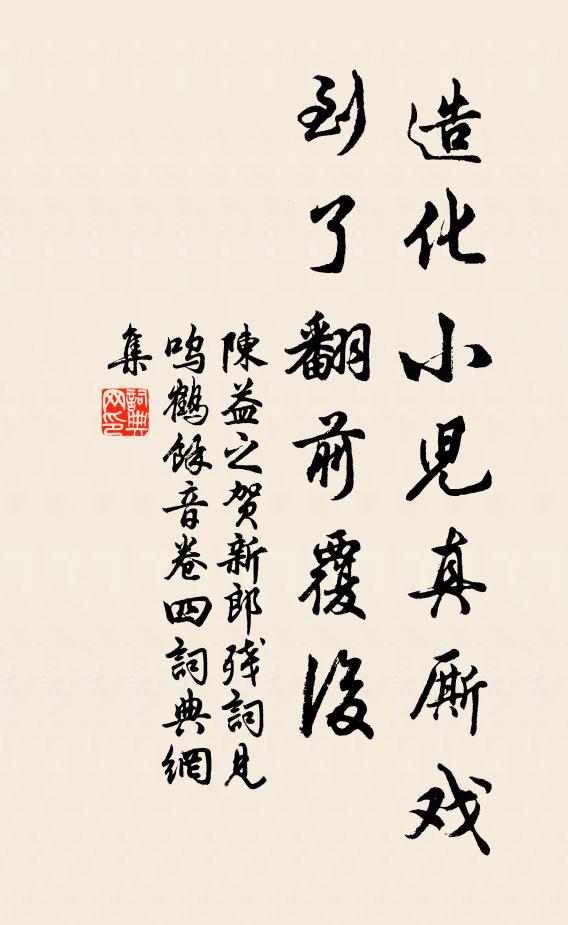 造化小児真厮戏
到了翻前覆後
陳益之贺新郎残詞見
鸣鶴馀音卷四詞典網
集
詞典网印